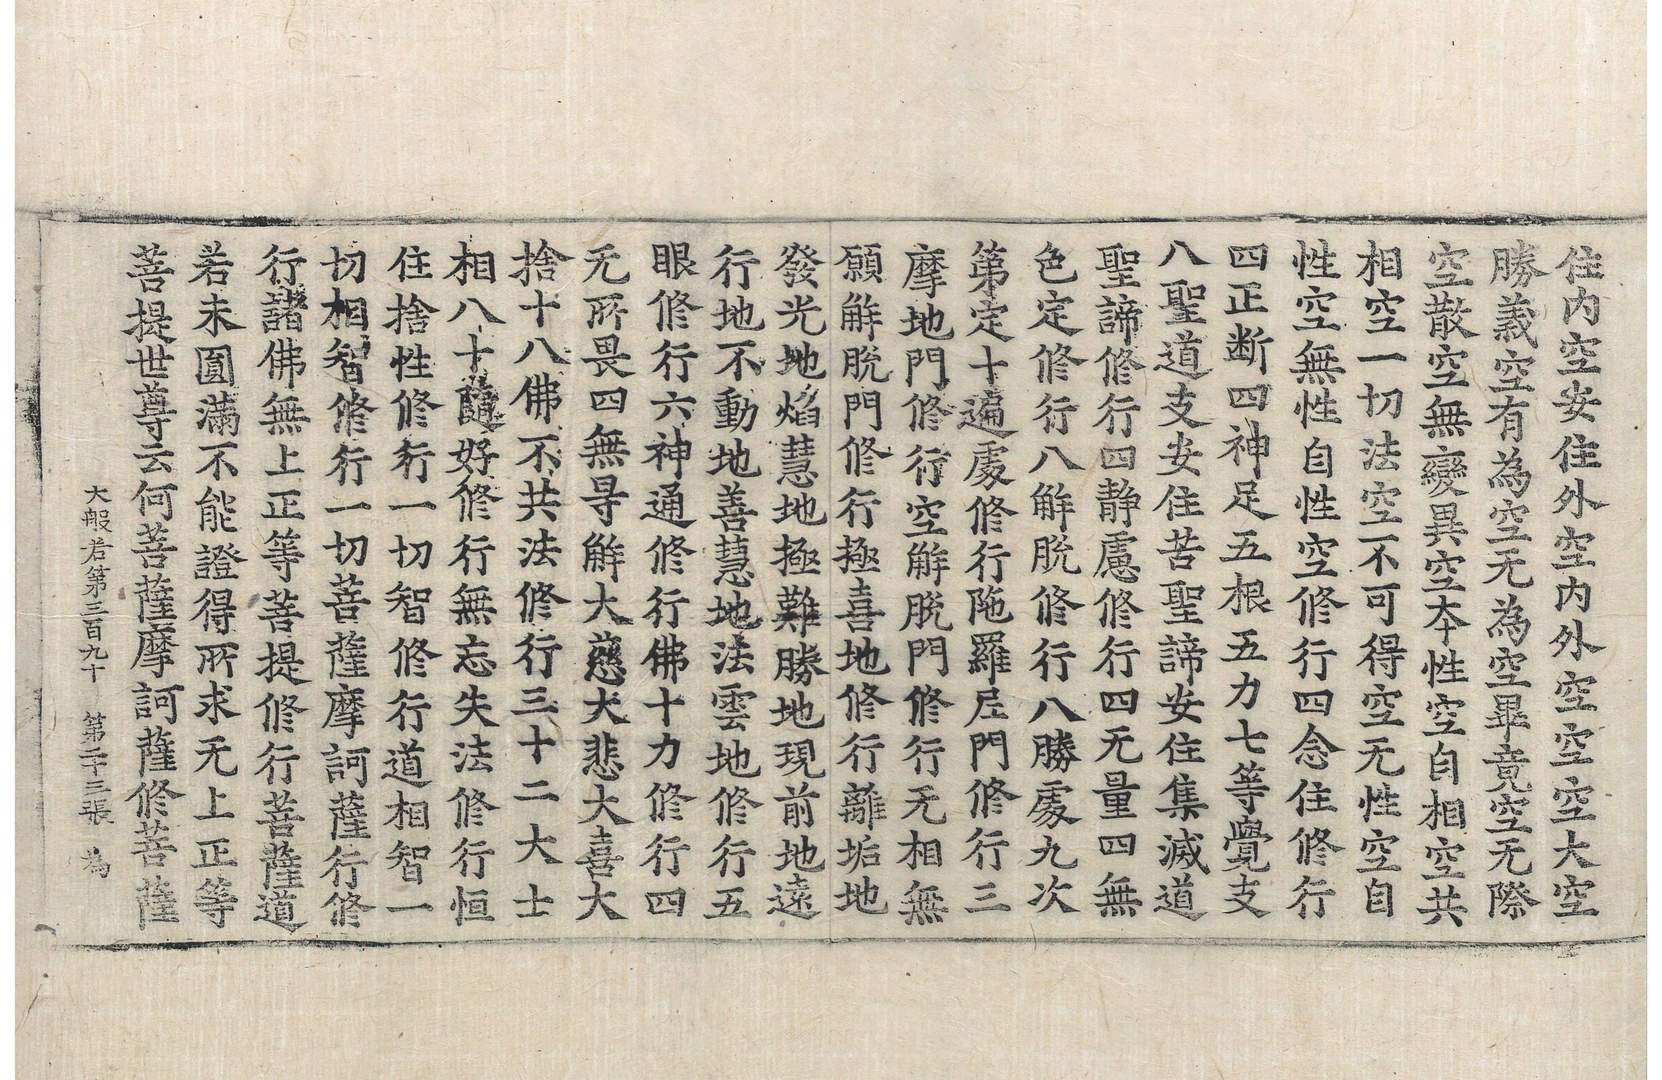 住内空安住外空内外空空空大空
勝義空有為空无為空畢竟空无際
空散空無變異空夲性空自相空共
相空一切法空不可得空无性空自
性空無性自性空修行四念住修行
四正断四神足五根五力七等覺支
八聖道支安住苦聖諦安住集滅道
聖諦修行四静慮修行四无量四無
色定修行八解脫修行八勝䖏九次
第定十遍䖏修行陁羅尼門修行三
摩地門修行空解脫門修行无相無
願解脫門修行極喜地修行離垢地
發光地焰慧地極難勝地現前地遠
行地不動地善慧地法雲地修行五
眼修行六神通修行佛十力修行四
无所畏四無㝵解大慈大悲大喜大
捨十八佛不共法修行三十二大士
相八十随好修行無忘失法修行恒
住捨性修行一切智修行道相智一
切相智修行一切菩薩摩訶薩行修
行諸佛無上正等菩提修行菩薩道
若未圓滿不能證得所求无上正等
菩提世尊云何菩薩摩訶薩修菩薩
大般若第三百九十 第二十三張 為